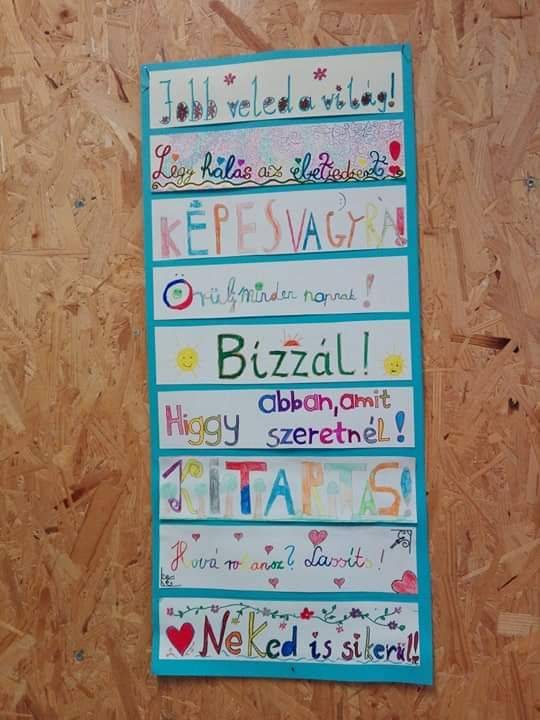 Jobb veled a világ!
Légy hálás az életedért!
KÉPES VAGY RÁ!
Örülj minden napnak!
Bízzál!
Higgy abban, amit
szeretnél!
KITARTÁS!
Hová rohansz? Lassíts!
Neked is sikerül!